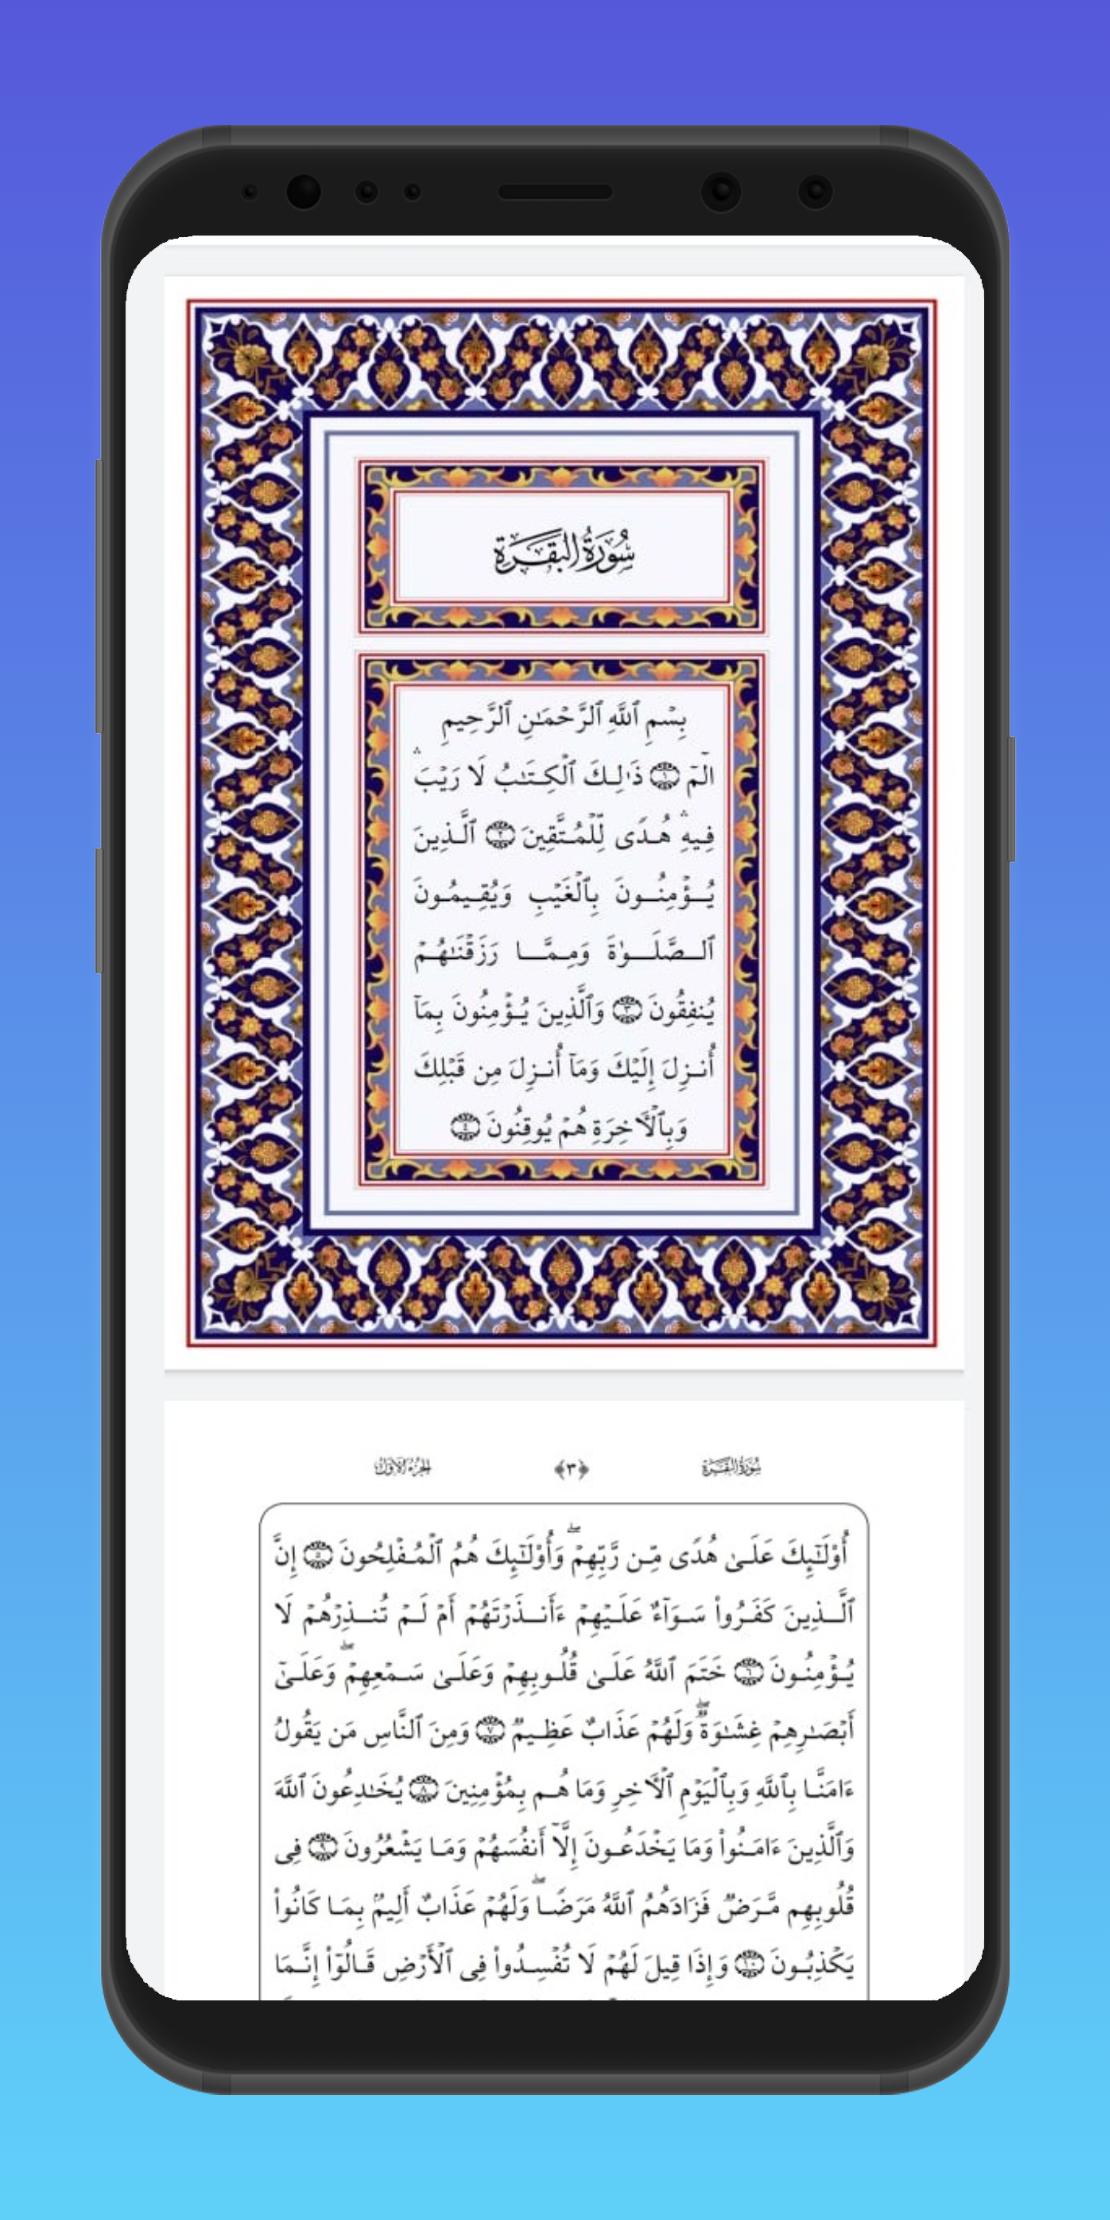 سُورَةُ البَقَرَةِ
بِسۡمِ ٱللَّهِ ٱلرَّحۡمَٰنِ ٱلرَّحِيمِ
الٓمٓ ١ ذَٰلِكَ ٱلۡكِتَٰبُ لَا رَيۡبَۛ
فِيهِۛ هُدٗى لِّلۡمُتَّقِينَ ٢ ٱلَّذِينَ
يُؤۡمِنُونَ بِٱلۡغَيۡبِ وَيُقِيمُونَ
ٱلصَّلَوٰةَ وَمِمَّا رَزَقۡنَٰهُمۡ
يُنفِقُونَ ٣ وَٱلَّذِينَ يُؤۡمِنُونَ بِمَآ
أُنزِلَ إِلَيۡكَ وَمَآ أُنزِلَ مِن قَبۡلِكَ
وَبِٱلۡأٓخِرَةِ هُمۡ يُوقِنُونَ ٤
سُورَةُ البَقَرَةِ ﴿٣﴾ الجُزءُ الأَوَّلُ
أُوْلَٰٓئِكَ عَلَىٰ هُدٗى مِّن رَّبِّهِمۡۖ وَأُوْلَٰٓئِكَ هُمُ ٱلۡمُفۡلِحُونَ ٥ إِنَّ
ٱلَّذِينَ كَفَرُواْ سَوَآءٌ عَلَيۡهِمۡ ءَأَنذَرۡتَهُمۡ أَمۡ لَمۡ تُنذِرۡهُمۡ لَا
يُؤۡمِنُونَ ٦ خَتَمَ ٱللَّهُ عَلَىٰ قُلُوبِهِمۡ وَعَلَىٰ سَمۡعِهِمۡۖ وَعَلَىٰٓ
أَبۡصَٰرِهِمۡ غِشَٰوَةٞۖ وَلَهُمۡ عَذَابٌ عَظِيمٞ ٧ وَمِنَ ٱلنَّاسِ مَن يَقُولُ
ءَامَنَّا بِٱللَّهِ وَبِٱلۡيَوۡمِ ٱلۡأٓخِرِ وَمَا هُم بِمُؤۡمِنِينَ ٨ يُخَٰدِعُونَ ٱللَّهَ
وَٱلَّذِينَ ءَامَنُواْ وَمَا يَخۡدَعُونَ إِلَّآ أَنفُسَهُمۡ وَمَا يَشۡعُرُونَ ٩ فِي
قُلُوبِهِم مَّرَضٞ فَزَادَهُمُ ٱللَّهُ مَرَضٗاۖ وَلَهُمۡ عَذَابٌ أَلِيمُۢ بِمَا كَانُواْ
يَكۡذِبُونَ ١٠ وَإِذَا قِيلَ لَهُمۡ لَا تُفۡسِدُواْ فِي ٱلۡأَرۡضِ قَالُوٓاْ إِنَّمَا